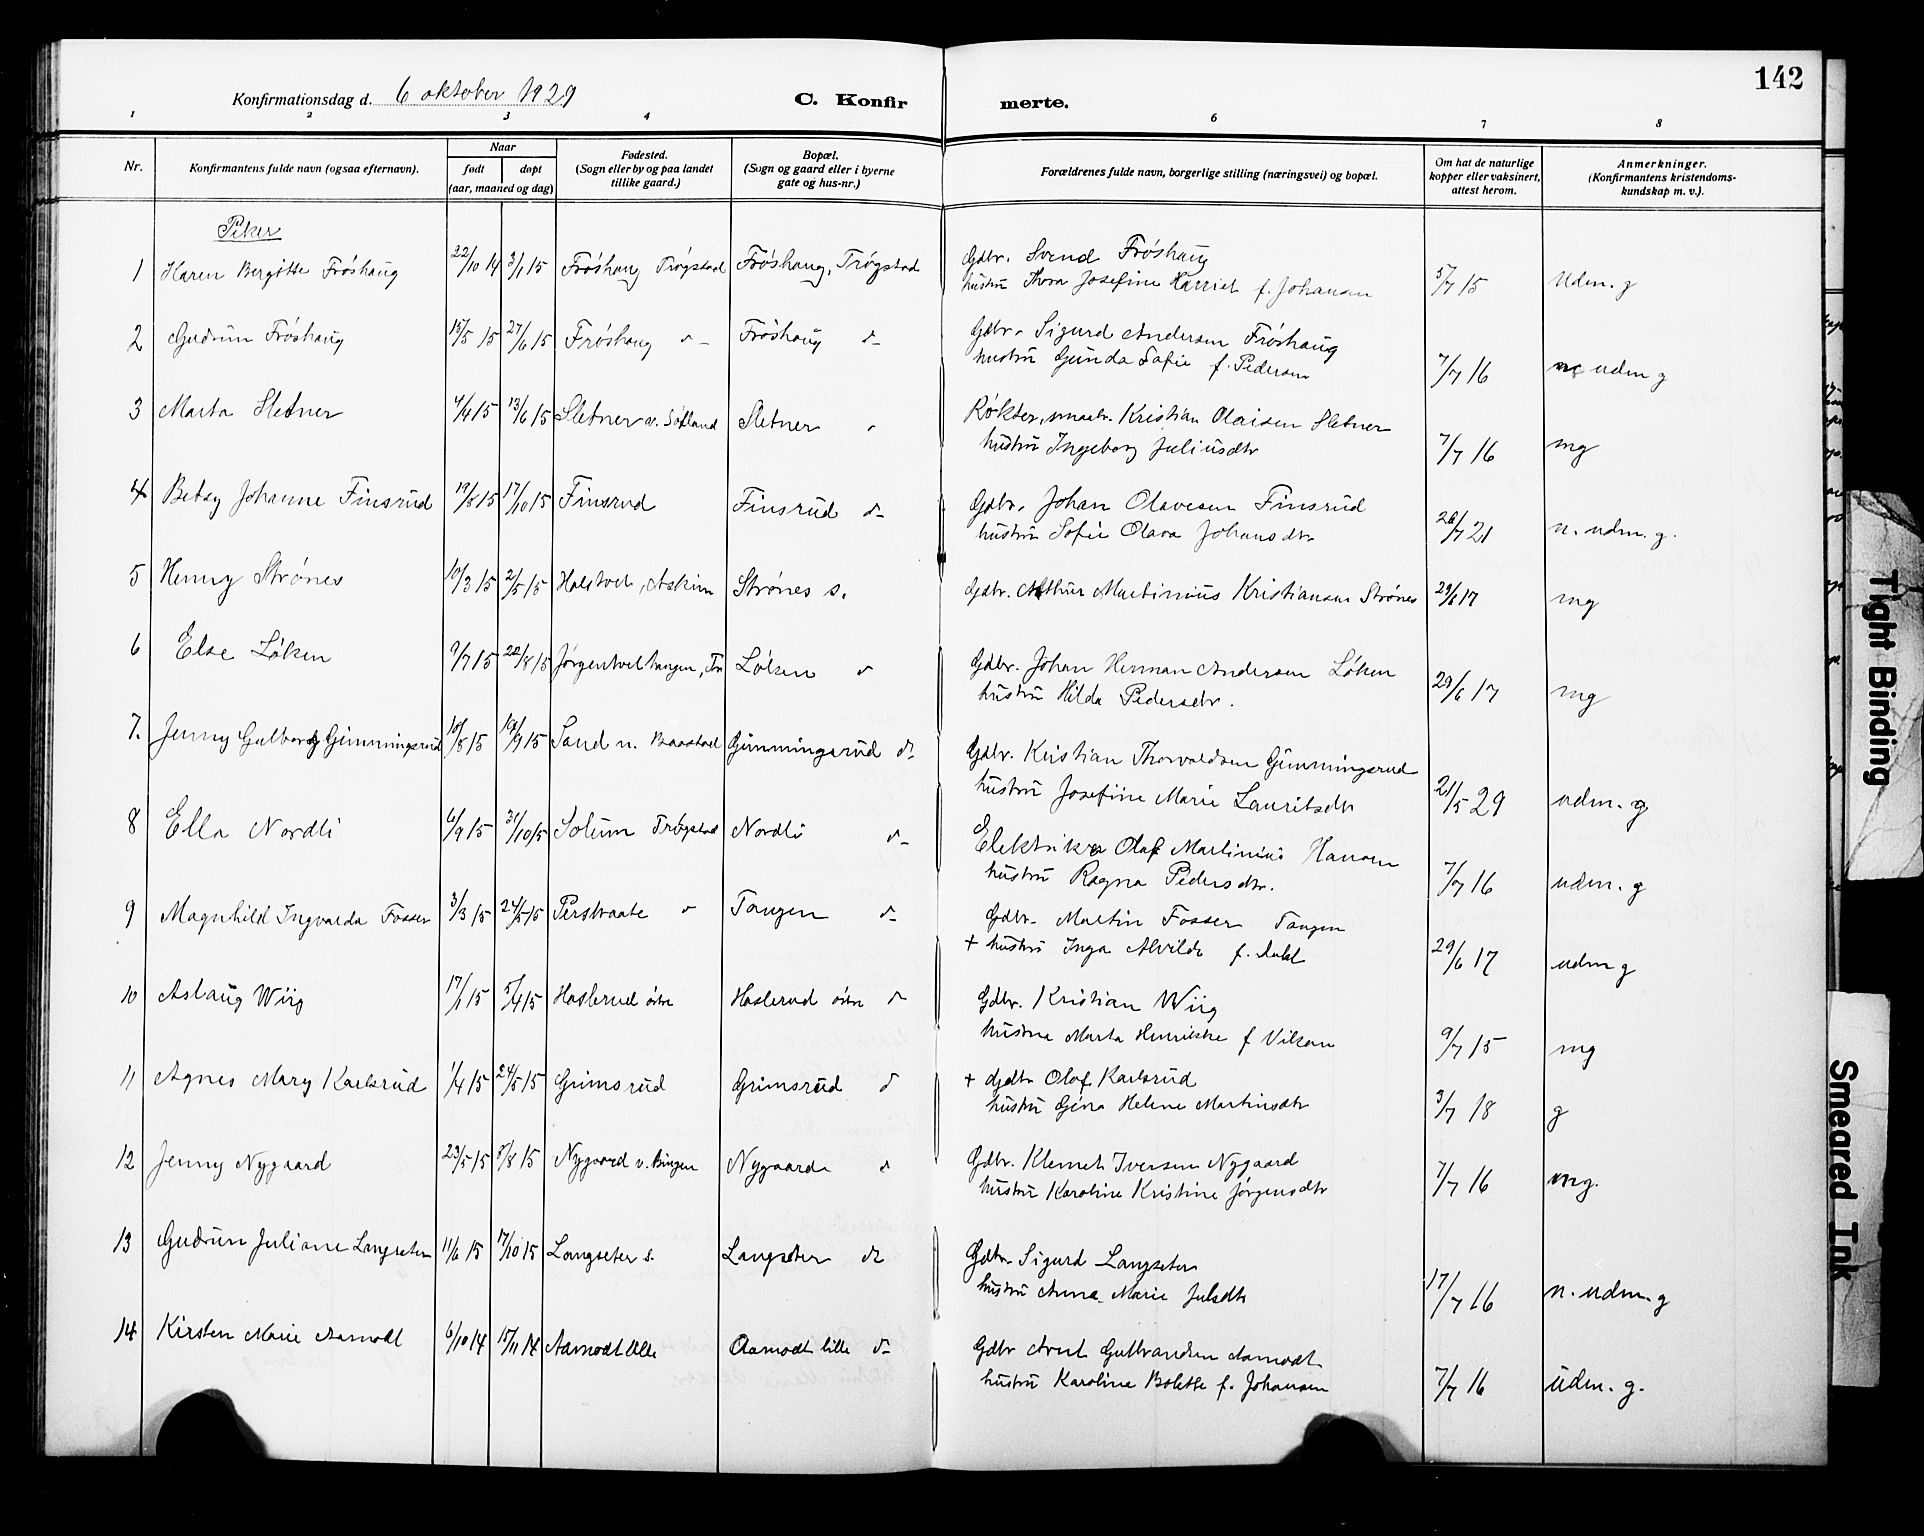 142
Konfirmationsdag d. 6 oktober 1929
C. Konfirmerte.
1 2 3 4 6 7 8
Nr.
Konfirmantens fulde navn (ogsaa efternavn).
Naar
født døpt
(aar, maaned og dag)
Fødested.
(Sogn eller by og paa landet
tillike gaard.)
Bopæl.
(Sogn og gaard eller i byerne
gate og hus-nr.)
Forældrenes fulde navn, borgerlige stilling (næringsvei) og bopæl.
Om hat de naturlige
kopper eller vaksinert,
attest herom.
Anmerkninger.
(Konfirmantens kristendoms-
kundskap m. v.).
Piker
1 Karen Bergitte Frøshaug 22/10 14 3/1 15 Frøshaug Trøgstad Frøshaug, Trøgstad Gdbr. Svend Frøshaug
hustru Thora Josefine Harriet f. Johansen 5/7 15 Udm. g
2 Gudrun Frøshaug 15/5 15 27/6 15 Frøshaug d- Frøshaug d- Gdbr. Sigurd Andersen Frøshaug
hustru Gunda Sofie f. Pedersen 7/7 16 udm g
3 Marta Sletner 4/4 15 13/6 15 Sletner v. Sørland Sletner Røkter, smaabr. Kristian Olaisen Sletner
hustru Ingeborg Juliusdtr 7/7 16 mg
4 Betsy Johanne Finsrud 19/8 15 17/10 15 Finsrud Finsrud d- Gdbr. Johan Olavesen Finsrud
hustru Sofie Olava Johansdtr 26/7 21 n. udm. g.
5 Henny Strønes 10/3 15 2/5 15 Holstvet, Askim Strønes s. Gdbr. Arthur Martinius Kristiansen Strønes 29/6 17 mg
6 Else Løken 9/7 15 22/8 15 Jørgentvettangen, Tr. Løken d Gdbr. Johan Herman Andersen Løken
hustru Hilda Pedersdtr. 29/6 17 mg
7. Jenny Gulborg Gimmingsrud 10/8 15 19/9 15 Sand n. Baastad Gimmingsrud d- Gdbr. Kristian Thorvaldsen Gimmingsrud
hustru Josefine Marie Lauritsdtr 21/5 29 udm. g
8 Ella Nordli 6/9 15 31/10 15 Solum Trøgstad Nordli d- Elektriker Olaf Martinius Hansen
hustru Ragna Pedersdtr. 7/7 16 udm. g
9 Magnhild Ingvarda Fosser 3/3 15 24/5 15 Perstraate d Tangen d- Gdbr. Martin Fosser Tangen
+ hustru Inga Alvilde f. Dahl 29/6 17 udm g
10 Aslaug Wiig 17/1 15 5/4 15 Haslerud østre Haslerud østre d Gdbr. Kristian Wiig
hustru Marta Henrikke f Vilsen 9/7 15 mg
11 Agnes Mary Karlsrud 1/4 15 24/5 15 Grimsrud Grimsrud d + Gdbr Olaf Karlsrud
hustru Gina Helene Martinsdtr 3/7 18 g
12 Jenny Nygaard 23/5 15 8/8 15 Nygaard v. Bingen Nygaard d Gdbr. Klemet Iversen Nygaard
hustru Karoline Kristine Jørgensdtr 7/7 16 mg.
13 Gudrun Juliane Langseter 11/6 15 17/10 15 Langseter s. Langseter d- Gdbr Sigurd Langseter
hustru Anna Marie Julsdtr 17/7 16 n. udm. g
14 Kirsten Marie Aamodt 6/10 14 15/11 14 Aamodt lille Aamodt lille d- Gdbr Arnt Gulbrandsen Aamodt
hustru Karoline Bolette f. Johansen 7/7 16 udm. g.
Tight Binding
Smeared Ink